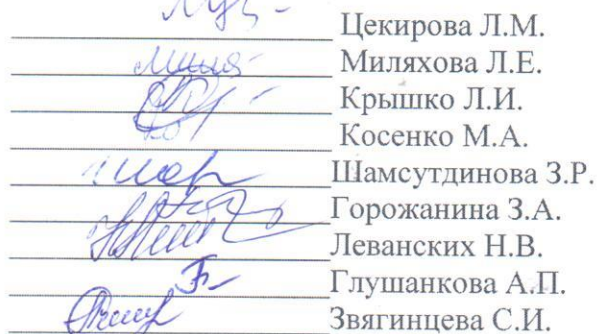 Цекирова Л.М.
Миляхова Л.Е.
Крышко Л.И.
Косенко М.А.
Шамсутдинова З.Р.
Горожанина З.А.
Леванских Н.В.
Глушанкова А.П.
Звягинцева С.И.